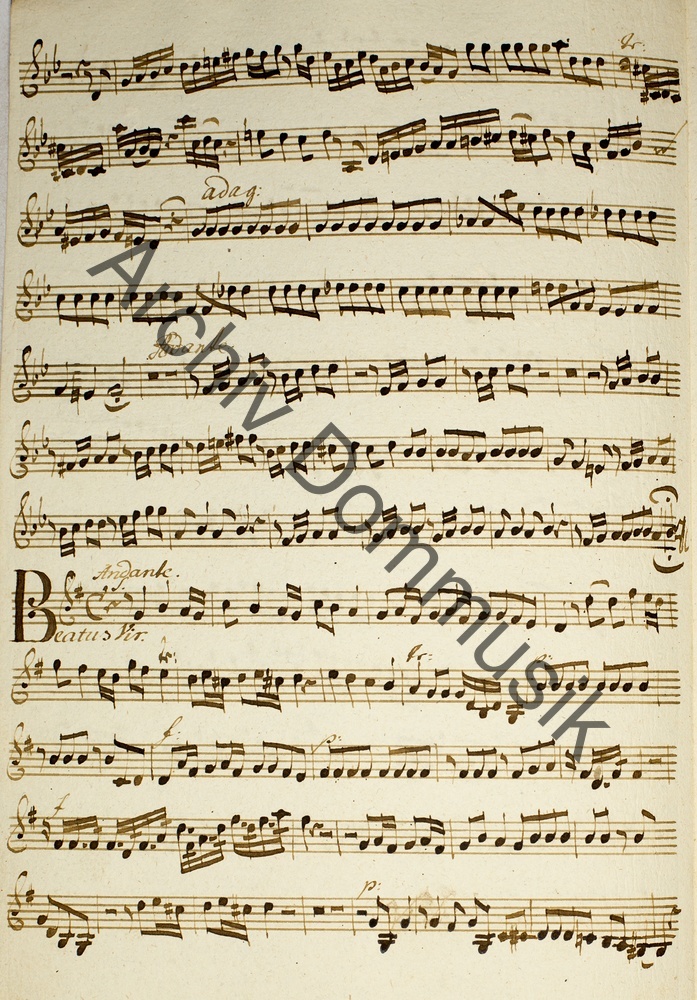 tr:
adag:
Andante
Andante.
Beatus Vir.
tr: tr: p:
f: p:
f
p:
Archiv Dommusik